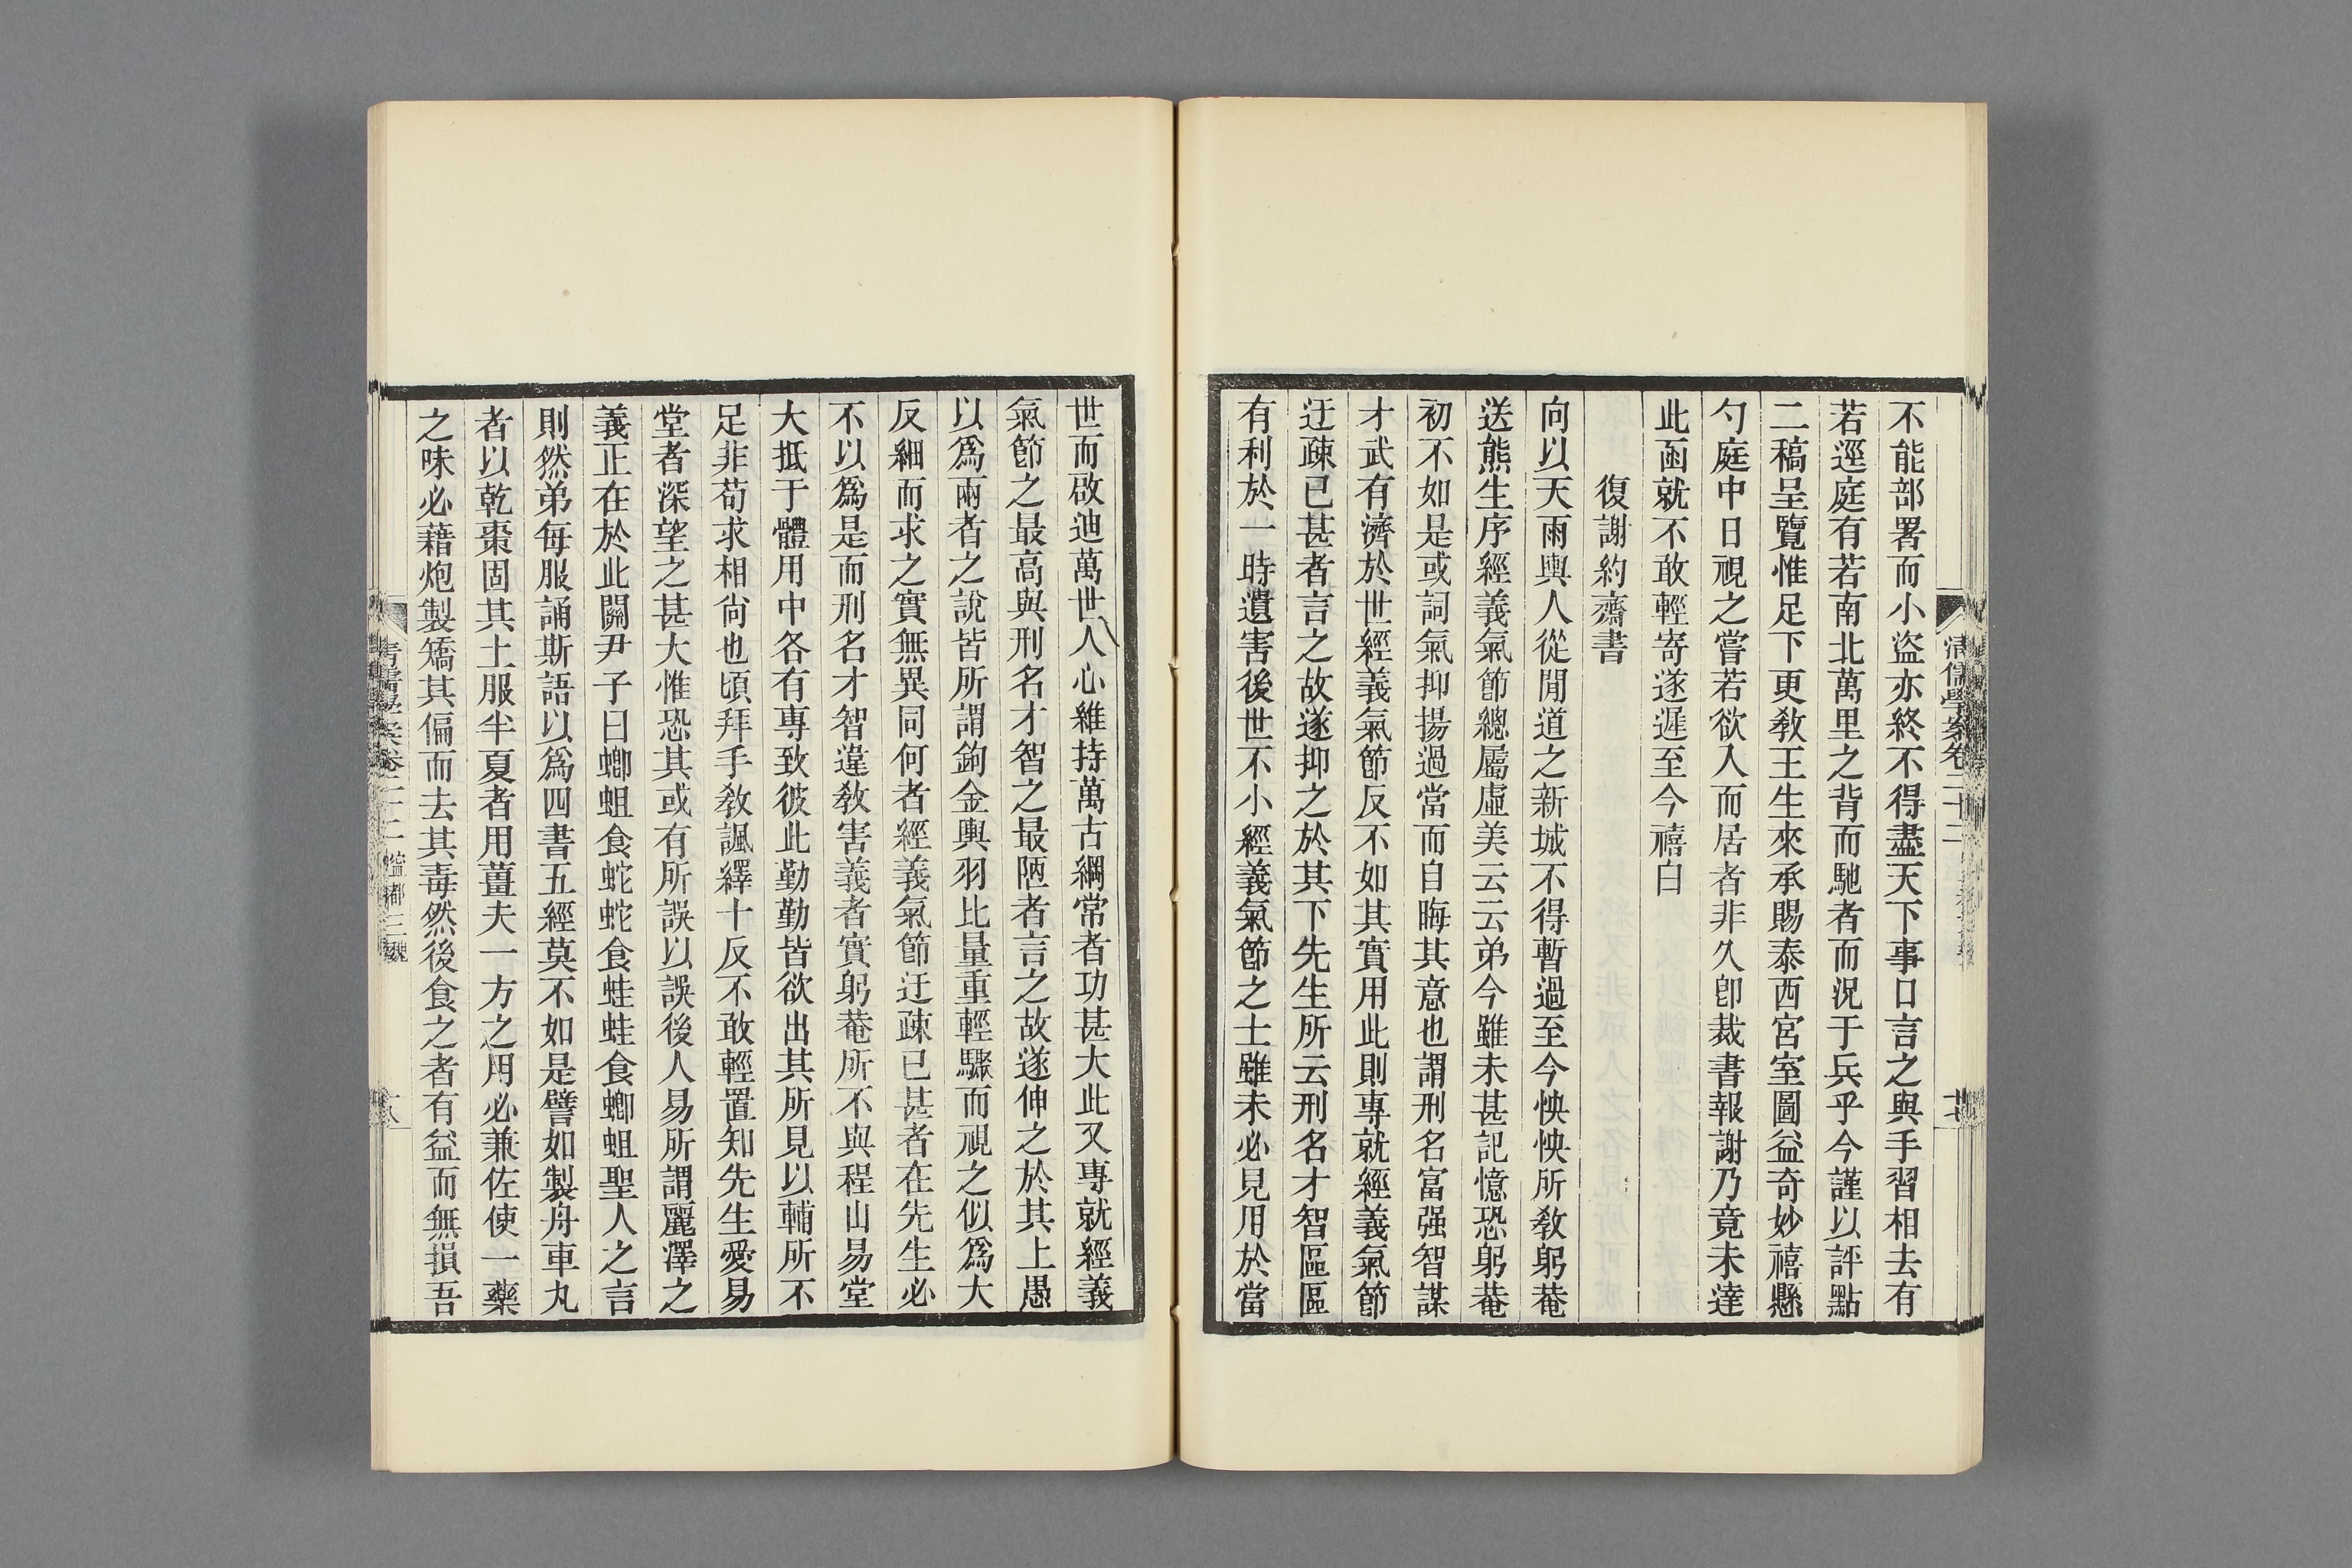 清儒學案卷二十二
不能部署而小盜亦終不得盡天下事口言之與手習相去有
若逕庭有若南北萬里之背而馳者而況于兵乎今謹以評點
二稿呈覽惟足下更敎王生來承賜泰西宮室圖益奇妙禧懸
勺庭中日視之嘗若欲入而居者非久卽裁書報謝乃竟未達
此函就不敢輕寄遂遲至今禧白
復謝約齋書
向以天雨輿人從閒道之新城不得暫過至今怏怏所敎躬菴
送熊生序經義氣節總屬虛美云云弟今雖未甚記憶恐躬菴
初不如是或詞氣抑揚過當而自晦其意也謂刑名富强智謀
才武有濟於世經義氣節反不如其實用此則專就經義氣節
迂疎已甚者言之故遂抑之於其下先生所云刑名才智區區
有利於一時遺害後世不小經義氣節之士雖未必見用於當
世而啟迪萬世人心維持萬古綱常者功甚大此又專就經義
氣節之最高與刑名才智之最陋者言之故遂伸之於其上愚
以爲兩者之說皆所謂鉤金輿羽比量重輕驟而視之似爲大
反細而求之實無異同何者經義氣節迂疎已甚者在先生必
不以爲是而刑名才智違敎害義者實躬菴所不與程山易堂
大抵于體用中各有專致彼此勤勤皆欲出其所見以輔所不
足非苟求相尙也頃拜手敎諷繹十反不敢輕置知先生愛易
堂者深望之甚大惟恐其或有所誤以誤後人易所謂麗澤之
義正在於此關尹子曰蝍蛆食蛇蛇食蛙蛙食蝍蛆聖人之言
則然弟每服誦斯語以爲四書五經莫不如是譬如製舟車丸
者以乾棗固其土服半夏者用薑夫一方之用必兼佐使一藥
之味必藉炮製矯其偏而去其毒然後食之者有益而無損吾